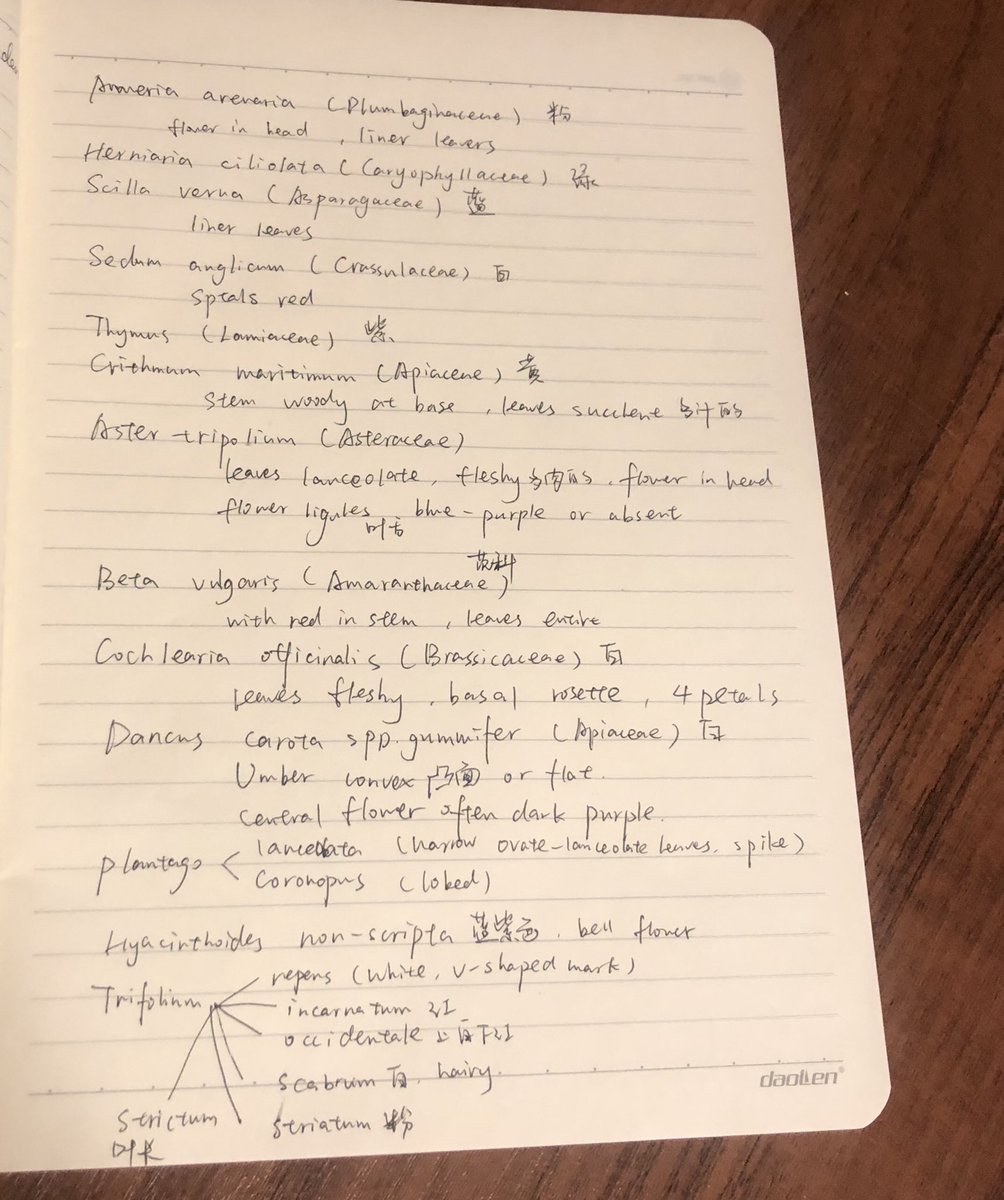 Armeria arenaria (Plumbaginaceae) 粉
flower in head , liner leavers
Herniaria ciliolata (Caryophyllaceae) 绿
Scilla verna (Asparagaceae) 蓝
liner leaves
Sedum anglicum (Crassulaceae) 白
sptals red
Thymus (Lamiaceae) 紫
Crithmum maritimum (Apiaceae) 黄
stem woody at base , leaves succlent 多汁的
Aster tripolium (Asteraceae)
leaves lanceolate, fleshy 多肉的, flower in head
flower ligules blue-purple or absent
叶舌
苋科
Beta vulgaris (Amaranthaceae)
with red in stem , leaves entire
Cochlearia officinalis (Brassicaceae) 白
leaves fleshy , basal rosette , 4 petals
Dancus carota spp. gummifer (Apiaceae) 白
Umber convex 凸面 or flat.
central flower often dark purple.
plantago < lanceolata (narrow ovate-lanceolate leaves, spike)
coronopus (lobed)
Hyacinthoides non-scripta 蓝紫色, bell flower
repens (White, V-shaped mark)
Trifolium
incarnatum 红
occidentale 上白下红
scabrum 白, hairy.
striatum 粉
strictum
叶长
daolen